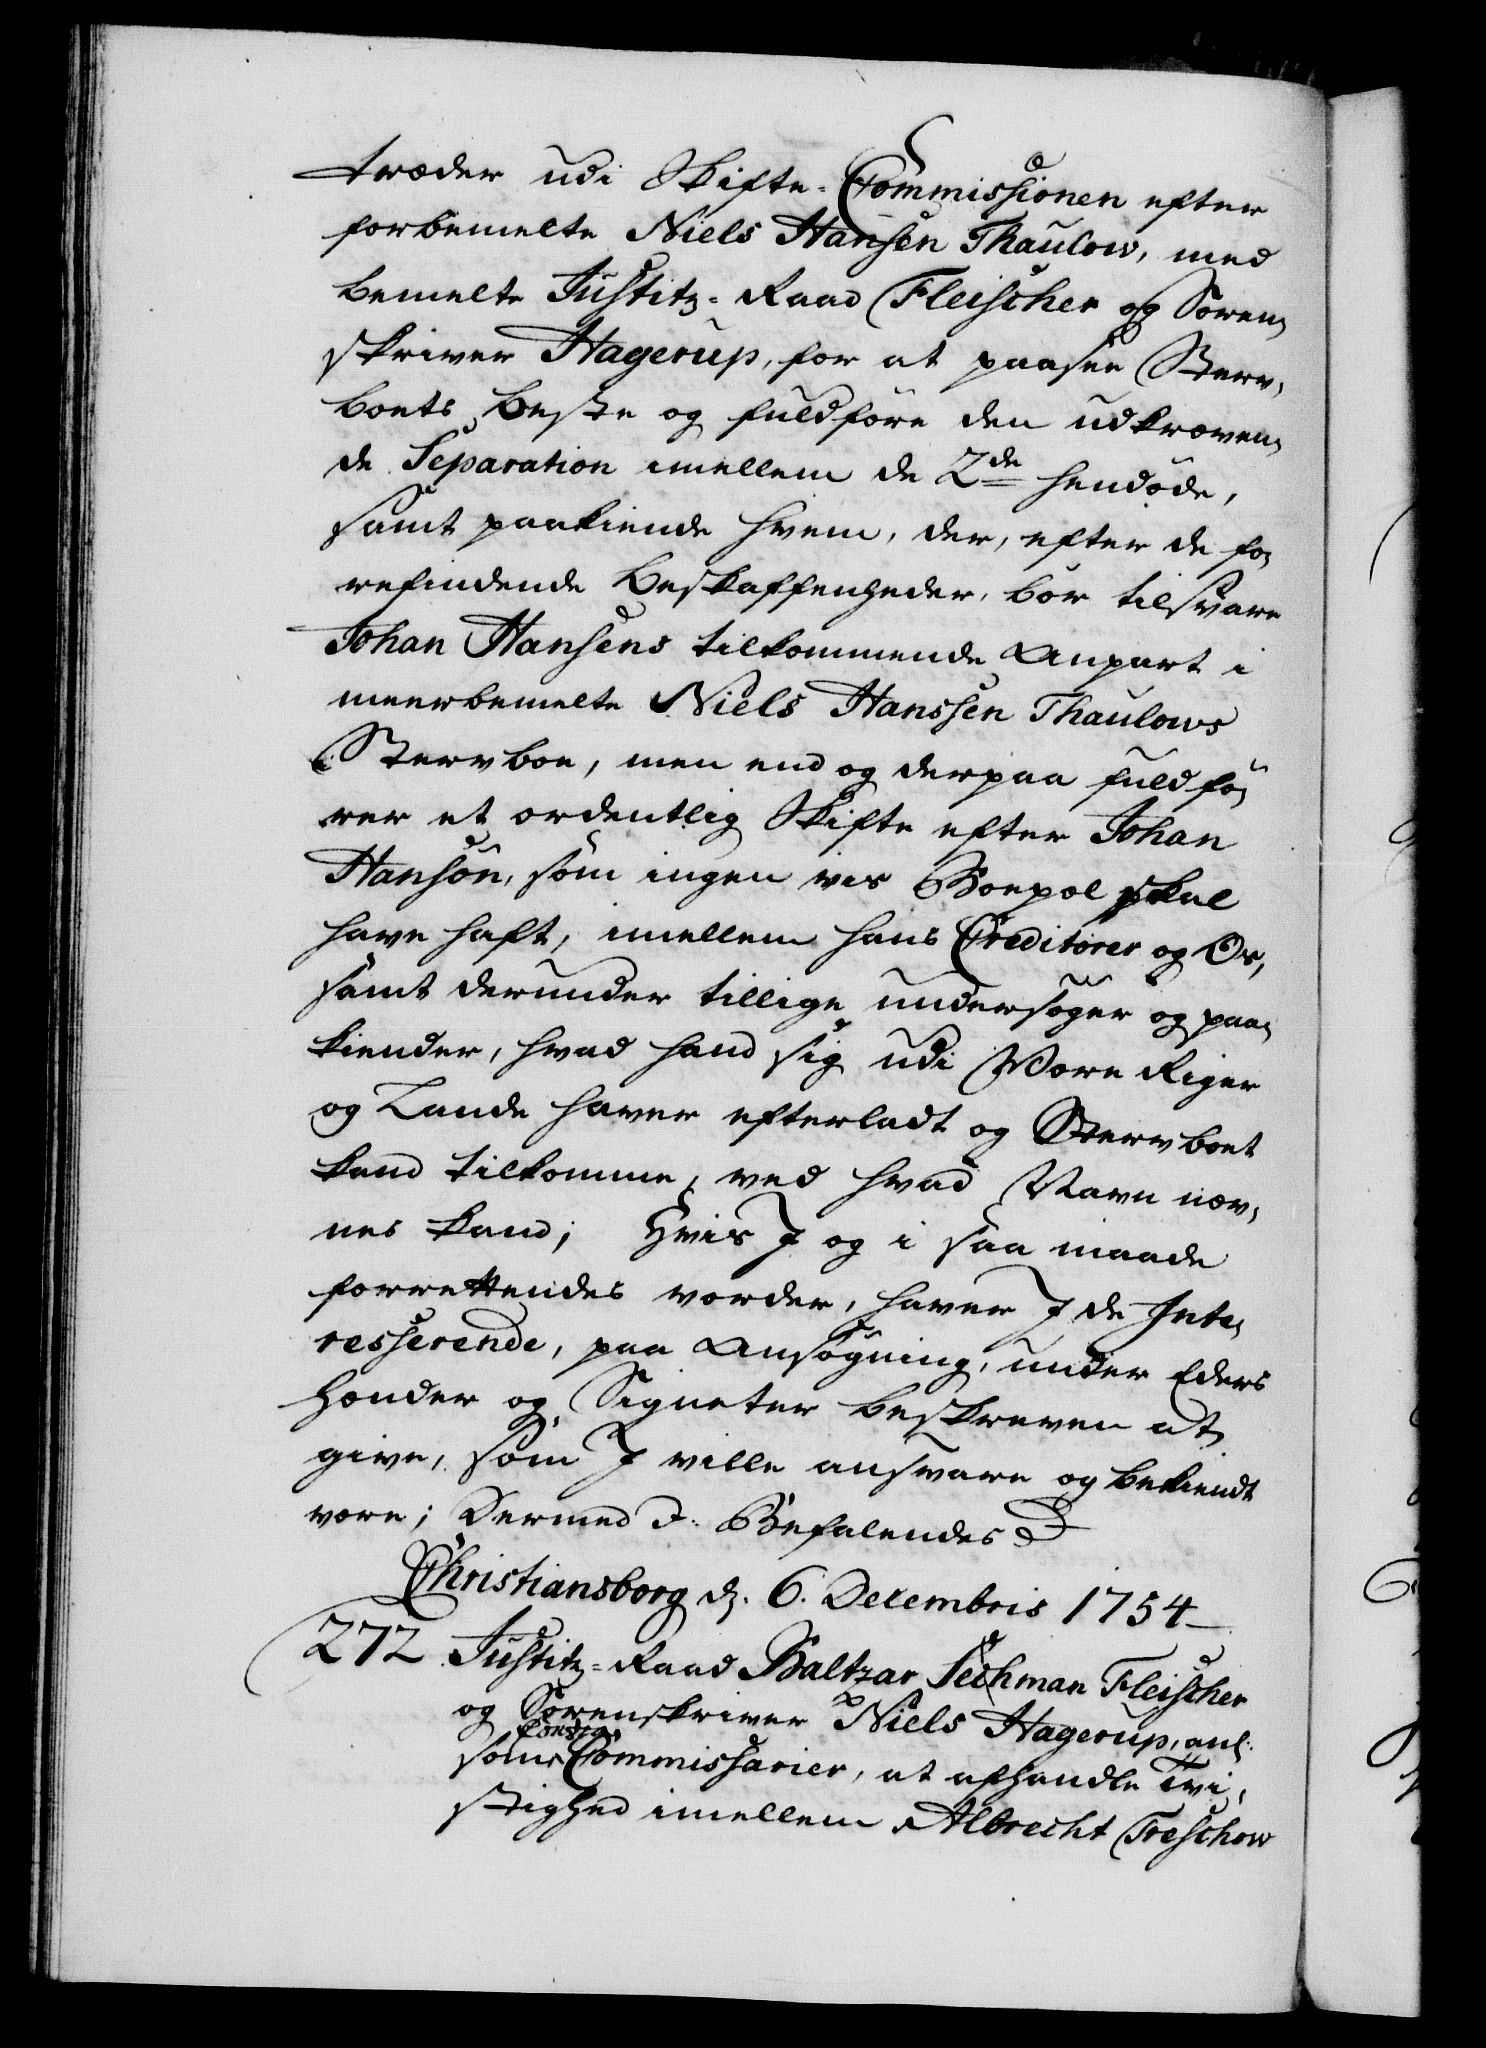 træder udi Skifte-Commissionen efter
forbemelte Niels Hansen Thaulow, med
bemelte Justitz-Raad Fleischer og Soren-
skriver Hagerup, for at paasee Sterv-
boets Beste og fuldføre den udkræven-
de Separation imellem de 2de hendøde,
samt paakiende hvem, der, efter de fo-
refindende Beskaffenheder, bør tilsvare
Johan Hansens tilkommende Anpart i
meerbemelte Niels Hanssen Thaulows
Stervboe, men end og derpaa fuldfø-
rer et ordentlig Skifte efter Johan
Hansøn, som ingen vis Boepæl skal
have haft, imellem hans Creditorer og
samt derunder tillige undersøger og paa-
kiender, hvad hand sig udi Vore Riger
og Lande haver efterladt og Stervboet
kand tilkomme, ved hvad Navn næv-
nes kand; Hvis I og i saa maade
forrettendes vorder, haver I de Inte-
resserende, paa Ansøgning, under Eders
Hænder og Signeter beskreven at
give, som I ville ansvare og bekiendt
være; Dermed Befalendes
Christiansborg d. 6. Decembris 1754
272 Justitz-Raad Baltzar Sechman Fleischer
og Sorenskriver Niels Hagerup, anl:
som Commissarier, at afhandle Tvi-
stighed imellem Albrecht Treschow